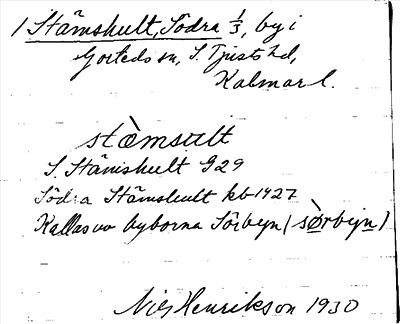 1 Stämshult, Södra 1/3, by i
Gorteds sn, S. Tjusts hd,
Kalmar l.
stæ̀msult
S. Stämshult G29
Södra Stämshult kb 1727
Kallas av byborna Sörbyn (sø̀rbyn)
Nils Henrikson 1930